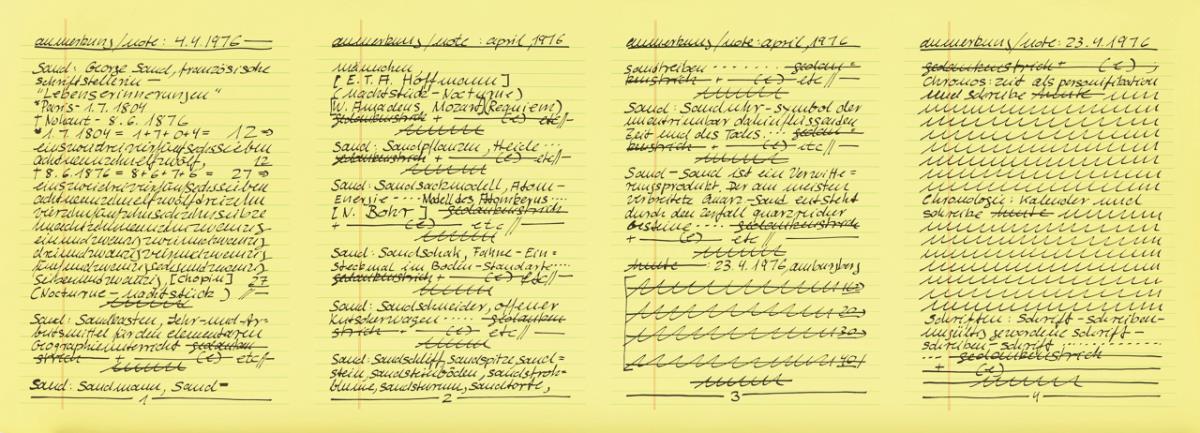 anmerkung/note: 4.4.1976
Sand: George Sand, französische
schriftstellerin –
"Lebenserinnerungen"
*Paris - 1.7.1804
† Nohant - 8.6.1876
* 1.7.1804 = 1+7+0+4 = 12 ⇒
einszweidreivierfünfsechssieben
achtneunzehnelfzwölf, 12
† 8.6.1876 = 8+6+7+6 = 27 ⇒
einszweidreivierfünfsechssieben
achtneunzehnelfzwölfdreizehn
einundzwanzigzweiundzwanzig
dreiundzwanzigvierundzwanzig
fünfundzwanzigsechsundzwanzig
siebenundzwanzig, [Chopin] 27
(Nocturne – nachtstück) //—
Sand: Sandkasten, Lehr-und-Ar-
beitsmittel für den elementaren
Geographieunterricht gedanken=
strich + — (e) — etc//—
Sand: Sandmann, Sand-
1
anmerkung/note: april, 1976
männchen
[E.T.A. Hoffmann]
(nachtstück - Nocturne)
[W. Amadeus, Mozart](Requiem)
gedankenstrich + — (e) — etc//—
Sand: Sandpflanzen, Heide ···
gedankenstrich + — (e) — etc//—
Sand: Sandsackmodell, Atom-
Energie ··· Modell des Atomkerns ···
[N. Bohr] – gedankenstrich
+ — (e) — etc //—
Sand: Sandschak, Fahne - Ein-
steckmal im Boden - Standarte ····
gedankenstrich + — (e) — etc//—
Sand: Sandschneider, offener
Kutscherwagen ····· gedanken
strich + — (e) — etc//—
Sand: Sandschliff, Sandspitze, Sand=
stein, sandsteinböden, sandstroh-
blume, sandsturm, sandtorte,
2
anmerkung/note: april, 1976
sandtreiben ······· gedanken=
kenstrich + — (e) — etc
Sand: Sanduhr - symbol der
unentrinnbar dahinfliessenden
Zeit und des Todes ···· gedan=
kenstrich + — (e) — etc//—
Sand – Sand ist ein Verwitte=
rungsprodukt. Der am meisten
verbreitete Quarz-Sand entsteht
durch den Zerfall quarzreicher
Gesteine ····· gedankenstrich
+ — (e) — etc //—
heute — : 23.4.1976,
10
20
30
40
3
anmerkung/note: 23.4.1976
gedankenstrich + — (e) —,
Chronos: zeit als personifikation
und schreibe heute
Chronologie: Kalender und
schreibe heute
Schriften: Schrift - schreiben -
ungültig gewordene schrift -
schreiben - schrift ·········
··· gedankenstrich
+ — (e) —
4